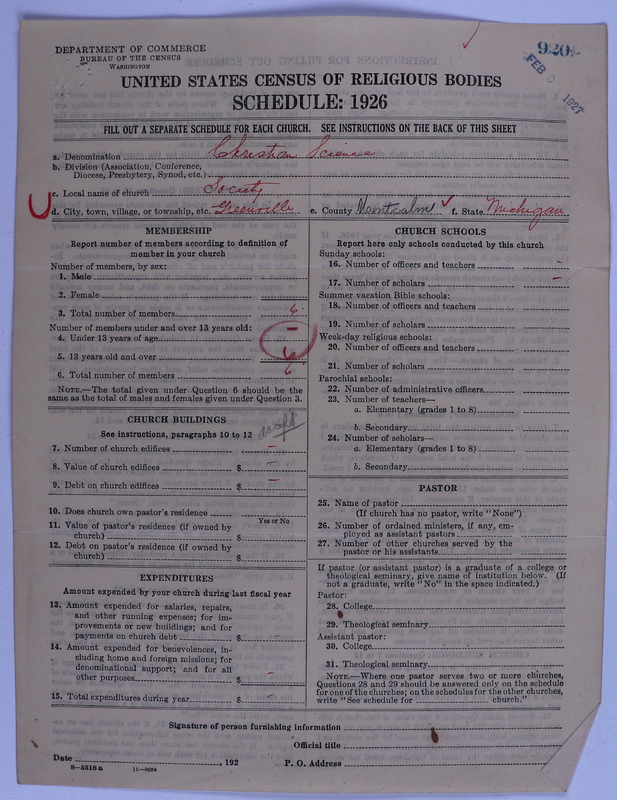 DEPARTMENT OF COMMERCE
BUREAU OF THE CENSUS
WASHINGTON
920
FEB 1927
UNITED STATES CENSUS OF RELIGIOUS BODIES
SCHEDULE: 1926
FILL OUT A SEPARATE SCHEDULE FOR EACH CHURCH. SEE INSTRUCTIONS ON THE BACK OF THIS SHEET
a. Denomination Christian Science
b. Division (Association, Conference,
Diocese, Presbytery, Synod, etc.)
c. Local name of church Society
d. City, town, village, or township, etc. Greenville e. County Montcalm f. State Michigan
MEMBERSHIP
Report number of members according to definition of
member in your church
Number of members, by sex:
1. Male
2. Female
3. Total number of members 6
Number of members under and over 13 years old:
4. Under 13 years of age –
5. 13 years old and over 6
6. Total number of members 6
NOTE.—The total given under Question 6 should be the
same as the total of males and females given under Question 3.
CHURCH BUILDINGS
See instructions, paragraphs 10 to 12
accept
7. Number of church edifices –
8. Value of church edifices $ –
9. Debt on church edifices $ –
10. Does church own pastor's residence
Yes or No
11. Value of pastor's residence (if owned by
church) $
12. Debt on pastor's residence (if owned by
church) $
EXPENDITURES
Amount expended by your church during last fiscal year
13. Amount expended for salaries, repairs,
and other running expenses; for im-
provements or new buildings; and for
payments on church debt $ –
14. Amount expended for benevolences, in-
cluding home and foreign missions; for
denominational support; and for all
other purposes $ –
15. Total expenditures during year $ –
CHURCH SCHOOLS
Report here only schools conducted by this church
Sunday schools:
16. Number of officers and teachers –
17. Number of scholars –
Summer vacation Bible schools:
18. Number of officers and teachers
19. Number of scholars
Week-day religious schools:
20. Number of officers and teachers
21. Number of scholars
Parochial schools:
22. Number of administrative officers
23. Number of teachers—
a. Elementary (grades 1 to 8)
b. Secondary
24. Number of scholars—
a. Elementary (grades 1 to 8)
b. Secondary
PASTOR
25. Name of pastor
(If church has no pastor, write "None")
26. Number of ordained ministers, if any, em-
ployed as assistant pastors
27. Number of other churches served by the
pastor or his assistants
If pastor (or assistant pastor) is a graduate of a college or
theological seminary, give name of institution below. (If
not a graduate, write "No" in the space indicated.)
Pastor:
28. College
29. Theological seminary
Assistant pastor:
30. College
31. Theological seminary
NOTE.—Where one pastor serves two or more churches,
Questions 28 and 29 should be answered only on the schedule
for one of the churches; on the schedules for the other churches,
write "See schedule for church."
Signature of person furnishing information
Official title
Date , 192 P. O. Address
8—5518 a 11—9064